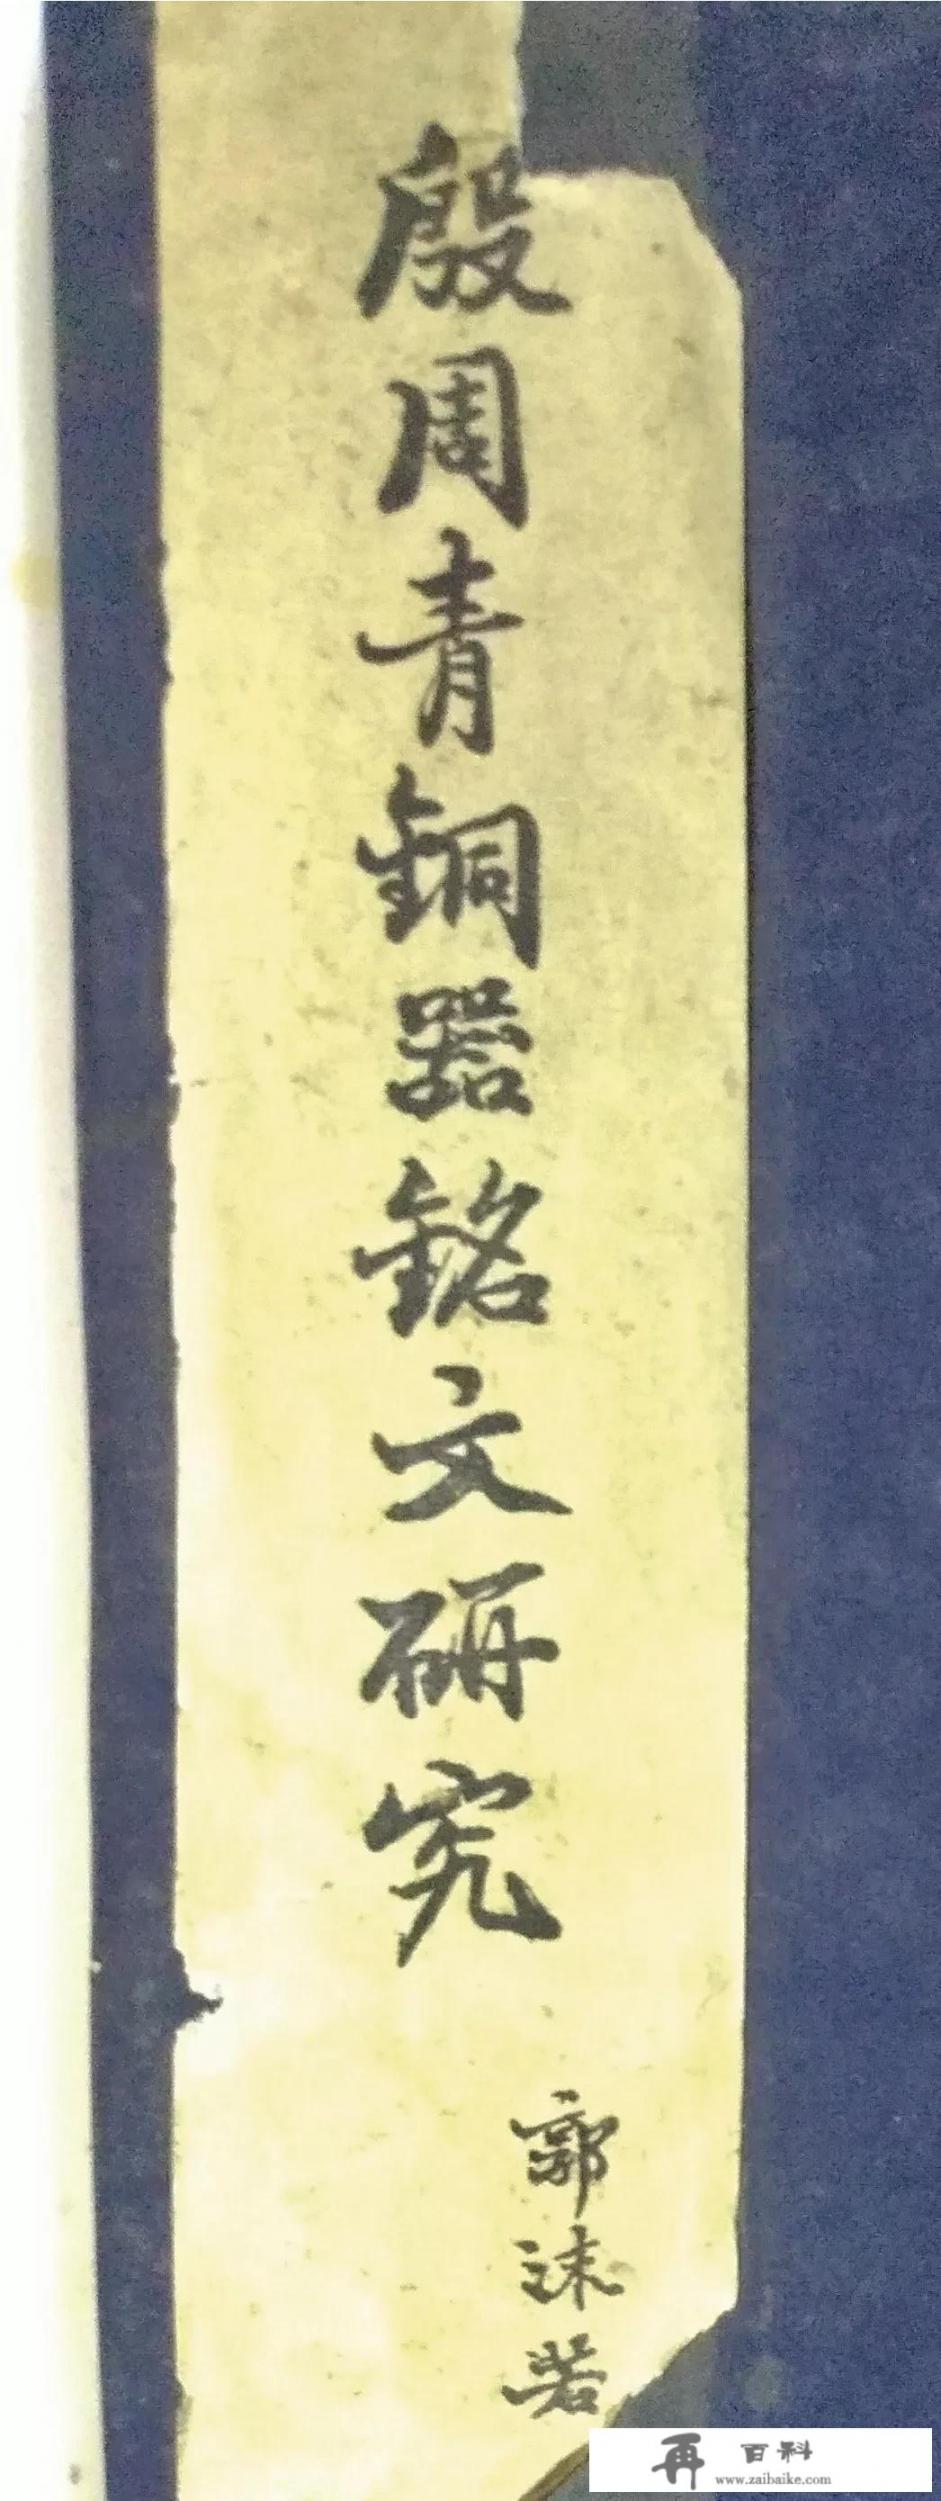 殷周青銅器銘文研究
郭沫若
再 百科
www.zaibaike.com